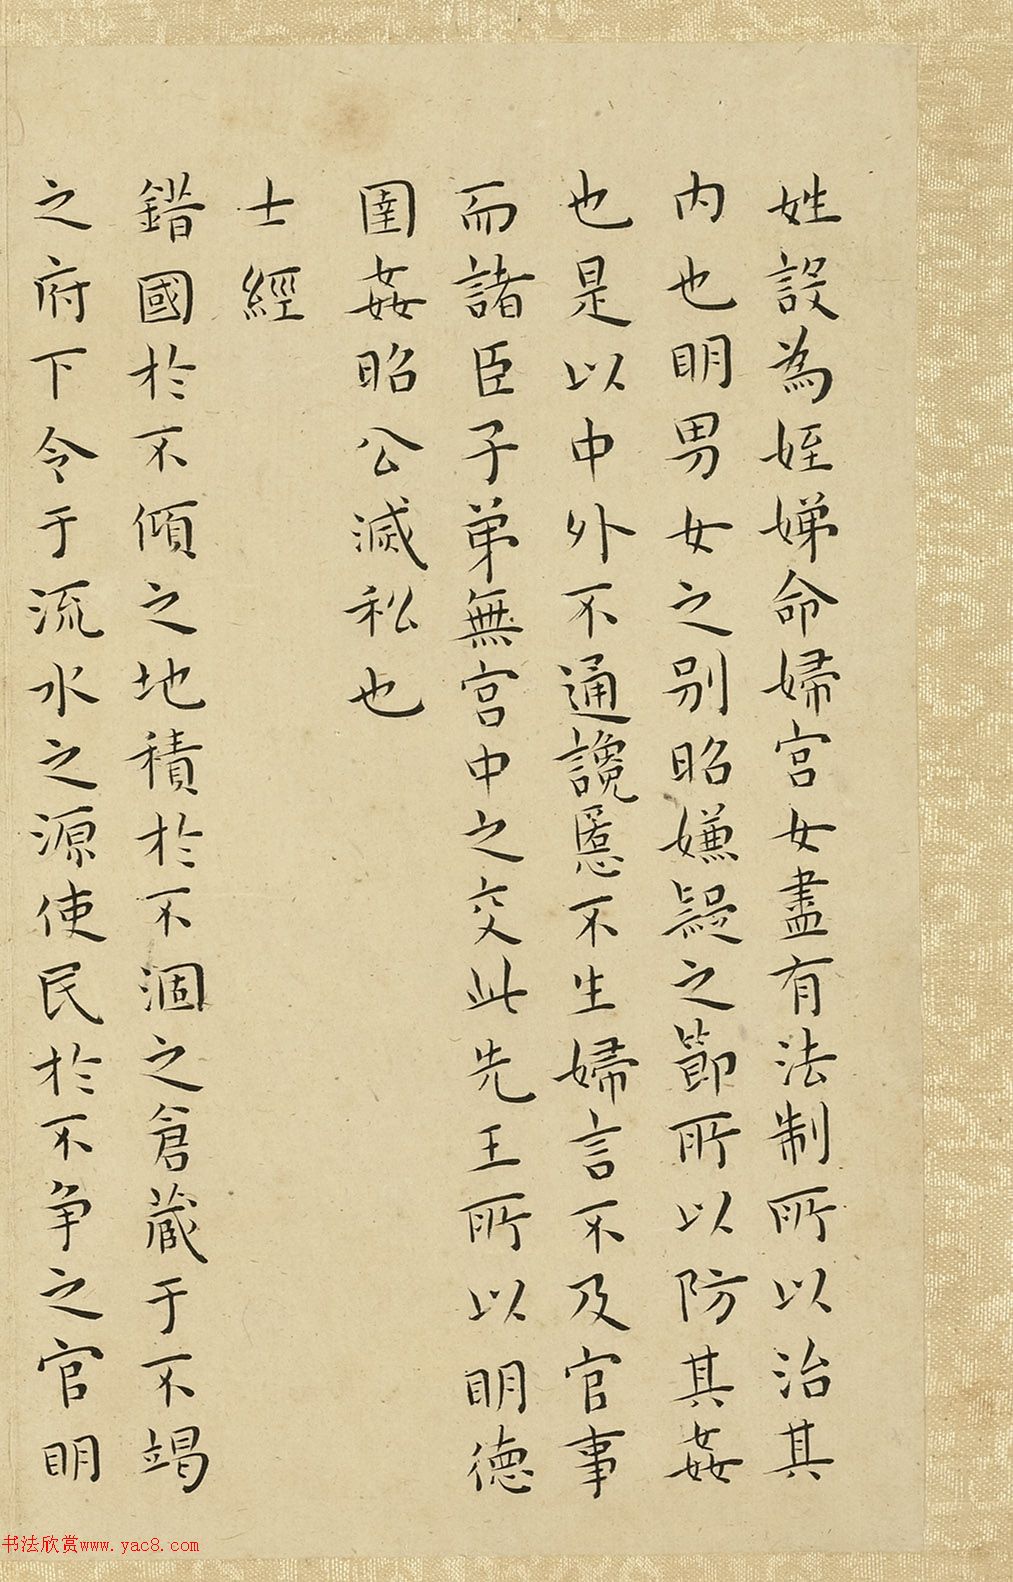 姓設為姪娣命婦宮女盡有法制所以治其
內也明男女之別昭嫌疑之節所以防其姦
也是以中外不通讒慝不生婦言不及官事
而諸臣子弟無宮中之交此先王所以明德
圉姦昭公滅私也
士經
錯國於不傾之地積於不涸之倉藏于不竭
之府下令于流水之源使民於不爭之官明
书法欣赏www.yac8.com